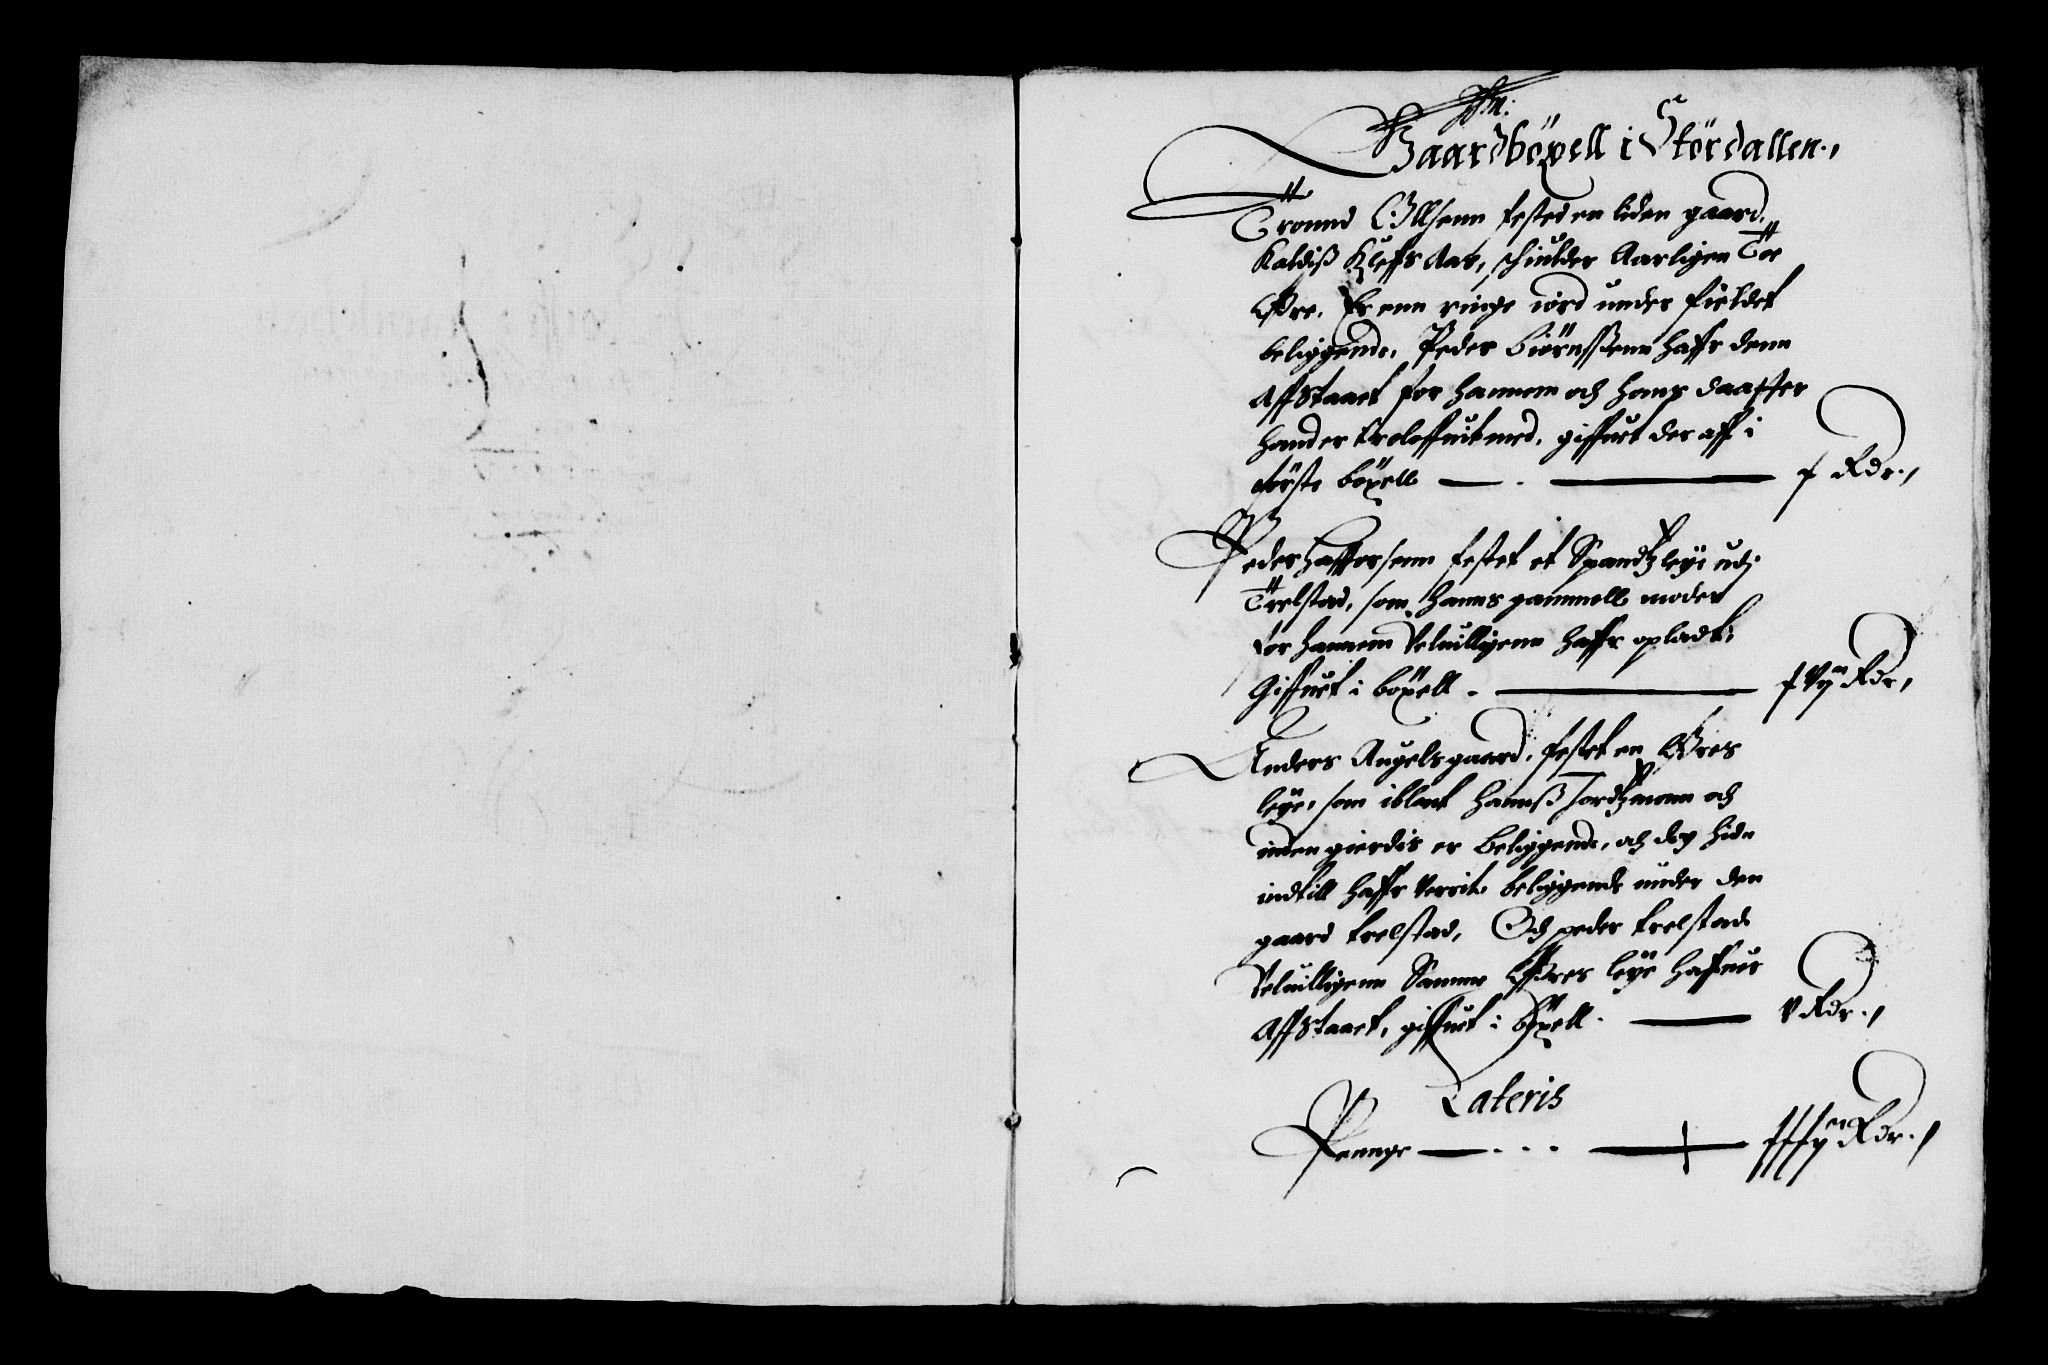 Gaardböxell i Stördallen.,
Tronnd Ollsenn fested en liden gaard,
Kaldiß Klefs Aas, schiulder Aarligen Toe
Øre, Er enn ringe iörd under fieldet
beliggende, Peder biörnßenn haffr denn
Affstaaet for hannem och hans daatter
hand er troloffuit med, giffuet der aff i
förste böxell — x Rdr.,
Peder haffforsenn festet et Spandtz leye udj
Trelstad, som hanns gammell moder
for hannem Veluilligenn haffr opladt,
Giffuet i böxell — x vij Rdr,
Anders Augelsgaard, festet en Øres
leye, som iblant hannß Jordtzmonn och
inden gierdis er beliggende, och dog hid
indtill haffr verrit beliggende under den
gaard trelstad, Och peder trelstad
Veluilligenn Samme Øres leye haffuer
Affstaaet, giffuet i böxell — v Rdr.,
Lateris
Pennge — xxxij Rdr.,